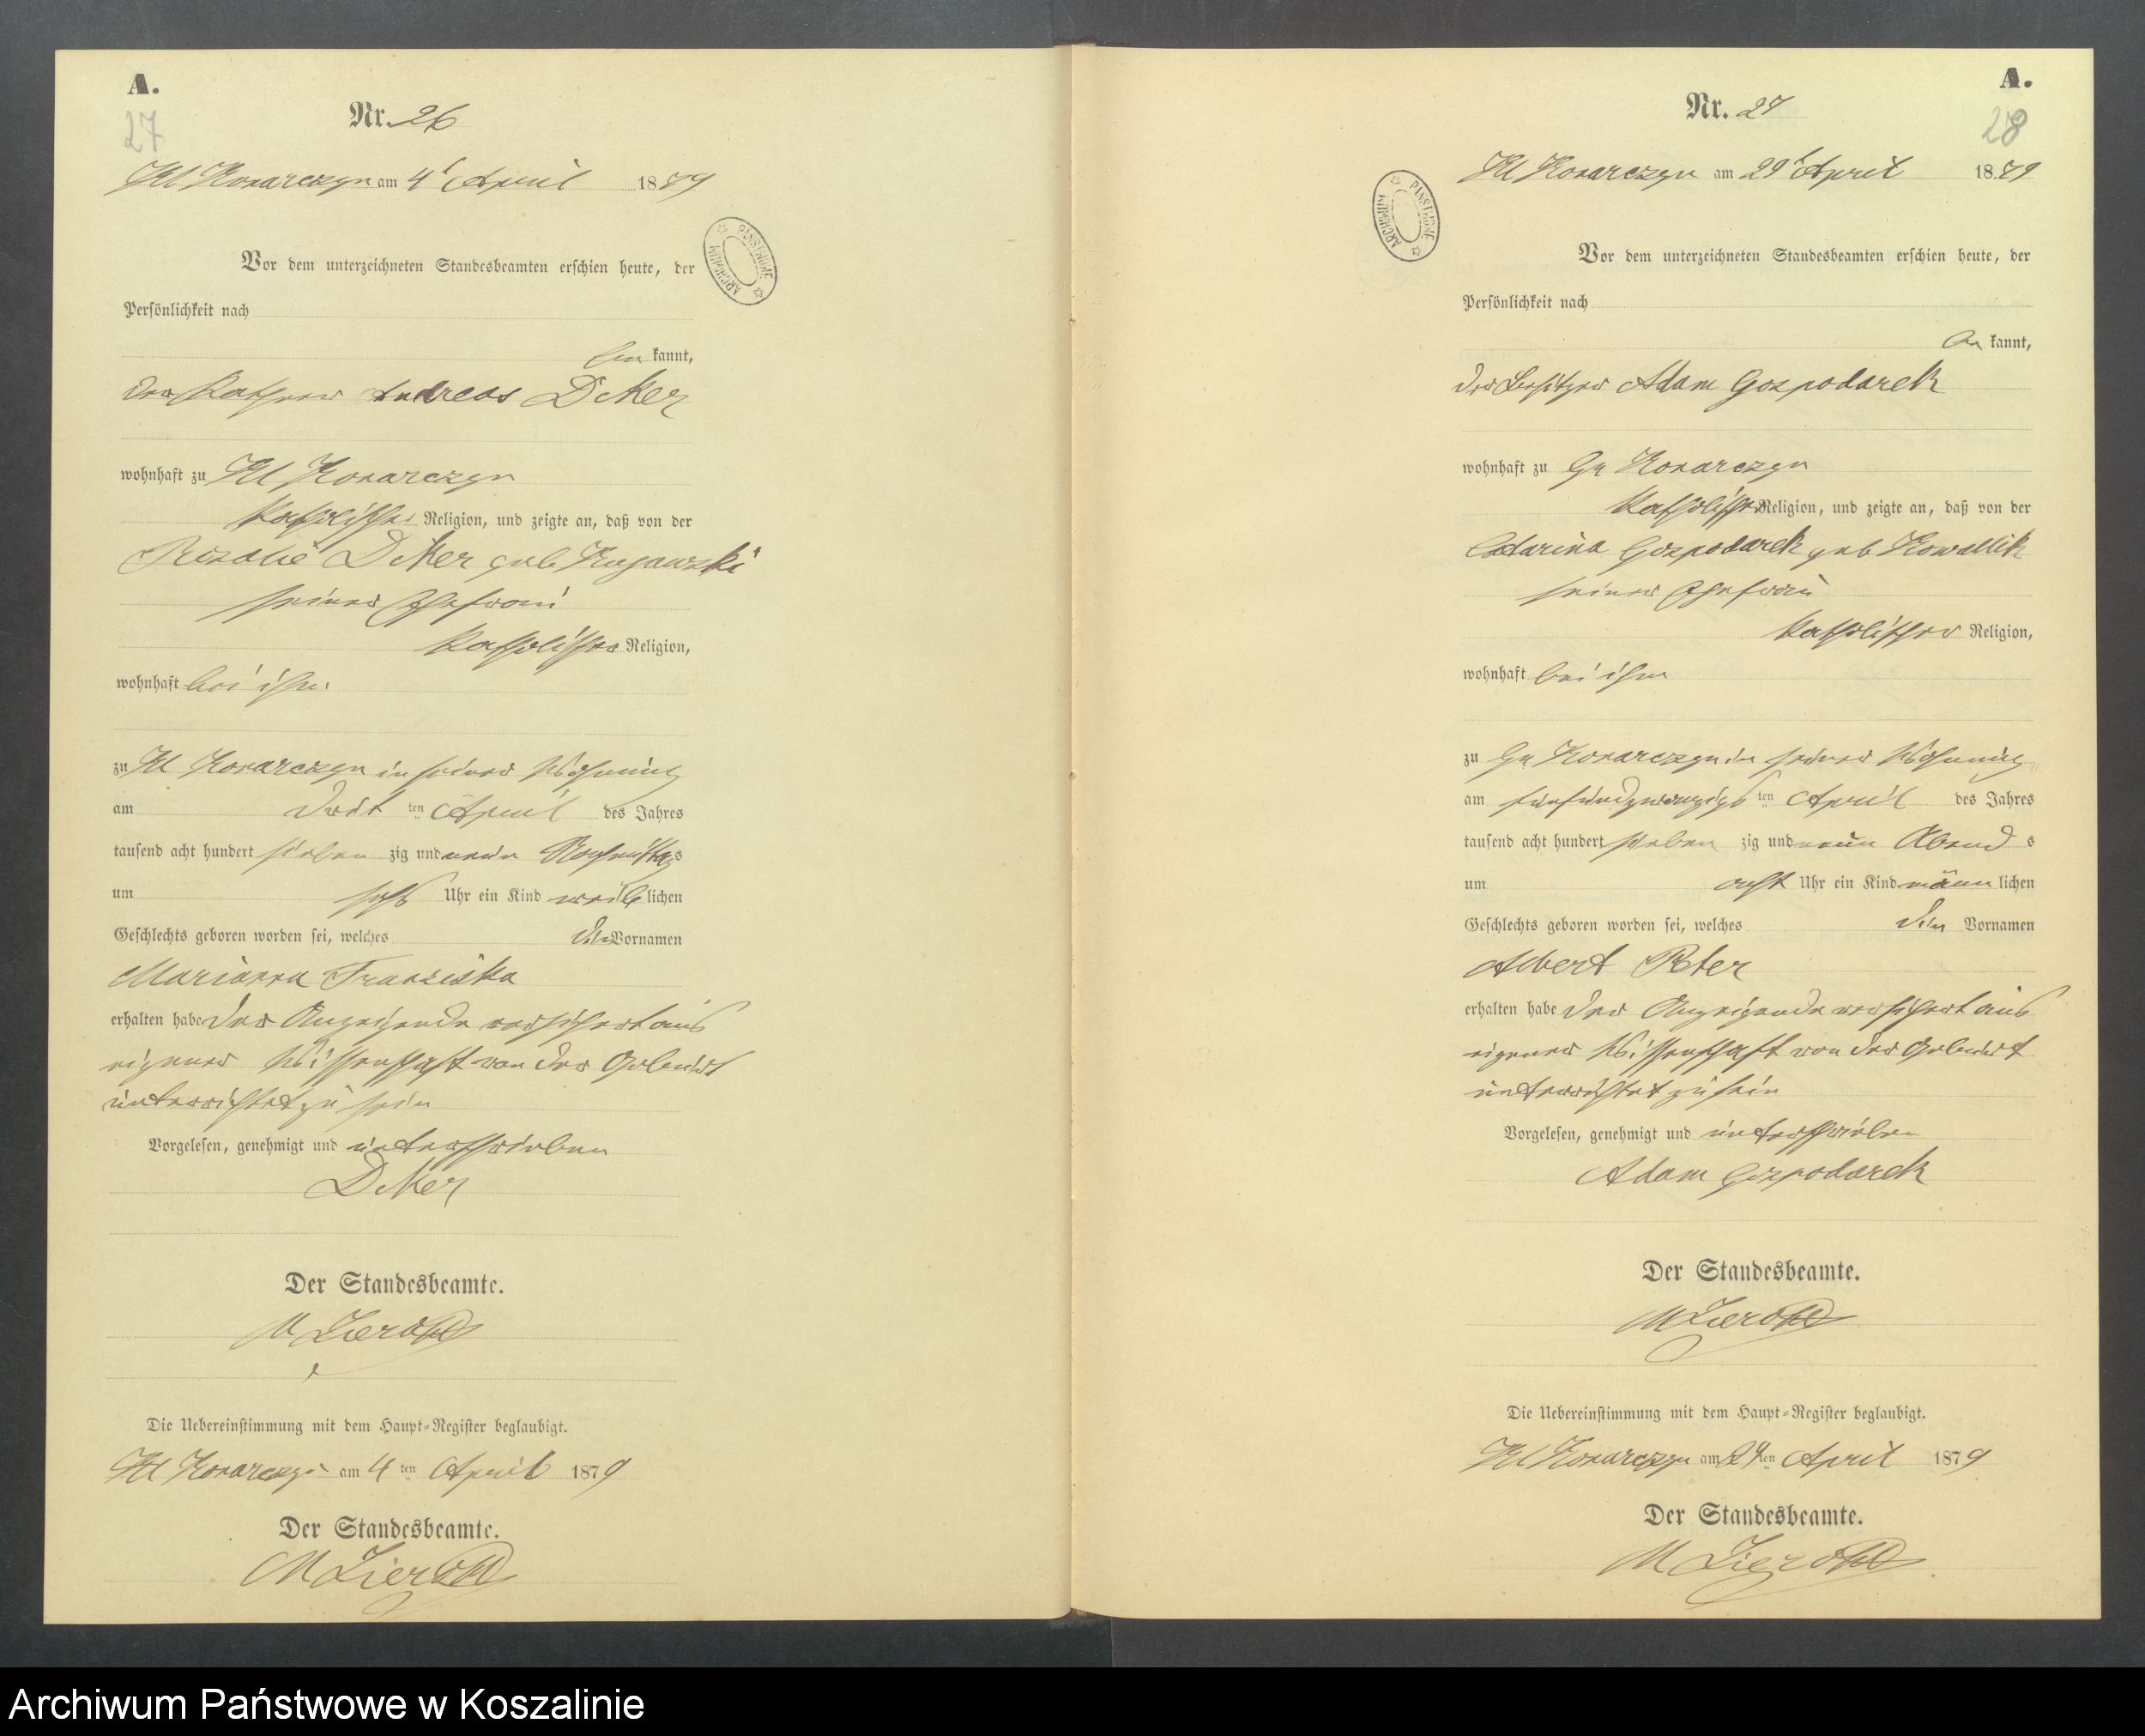 A.
27
Nr. 26
Kl Konarczyn am 4t April 1879
Vor dem unterzeichneten Standesbeamten erschien heute, der
Persönlichkeit nach
be kannt,
der Käthner Andreas
wohnhaft zu Kl Konarczyn
katholischer Religion, und zeigte an, daß von der
Rosalie geb
seiner Ehefrau
katholischer Religion,
wohnhaft bei ihm
zu Kl Konarczyn in seiner Wohnung
am dritten April des Jahres
tausend acht hundert sieben zig und neun Nachmittags
um sechs Uhr ein Kind weiblichen
Geschlechts geboren worden sei, welches die Vornamen
Marianna Franziska
erhalten habe Der Anzeigende versichert aus
eigener Wissenschaft von der Geburt
unterrichtet zu sein
Vorgelesen, genehmigt und unterschrieben
Der Standesbeamte.
Die Uebereinstimmung mit dem Haupt-Register beglaubigt.
Kl Konarczyn am 4ten April 1879
Der Standesbeamte.
ARCHIWUM PAŃSTWOWE
A.
28
Nr. 27
Kl Konarczyn am 29t April 1879
Vor dem unterzeichneten Standesbeamten erschien heute, der
Persönlichkeit nach
be kannt,
der Besitzer Adam Gospodarek
wohnhaft zu Gr Konarczyn
katholischer Religion, und zeigte an, daß von der
Catarina Gospodarek geb Kowallik
seiner Ehefrau
katholischer Religion,
wohnhaft bei ihm
zu Gr Konarczyn in seiner Wohnung
am fünfundzwanzigsten April des Jahres
tausend acht hundert sieben zig und neun Abends
um acht Uhr ein Kind männlichen
Geschlechts geboren worden sei, welches die Vornamen
Albert Peter
erhalten habe Der Anzeigende versichert aus
eigener Wissenschaft von der Geburt
unterrichtet zu sein
Vorgelesen, genehmigt und unterschrieben
Adam Gospodarek
Der Standesbeamte.
Die Uebereinstimmung mit dem Haupt-Register beglaubigt.
Kl Konarczyn am 29ten April 1879
Der Standesbeamte.
ARCHIWUM PAŃSTWOWE
Archiwum Państwowe w Koszalinie